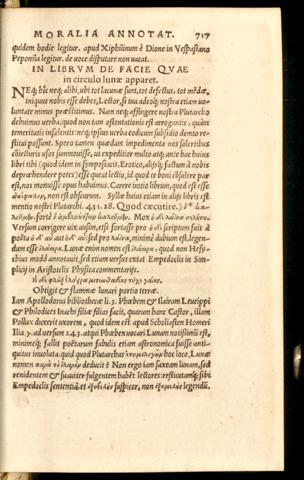 MORALIA ANNOTAT. 717
quidem hodie legitur. apud Xiphilinum è Dione in Vespasiano
Peponila legitur. de uoce disputare non uacat.
IN LIBRVM DE FACIE QVAE
in circulo lunæ apparet.
NEq; hîc neq; alibi, ubi tot lacunæ sunt, tot defectus, tot mẽdæ,
iniquus nobis esse debes, Lector, si tua adeoq; nostra etiam uo-
luntate minus præstitimus. Nam neq; affingere nostra Plutarcho
debuimus uerba: quod non tam ostentationis est arrogantis, quàm
temeritatis insolentis: neq; ipsius uerba codicum subsidio demto re-
stitui possunt. Spero tamen quædam impedimenta nos solertibus
obiecturis usos summouisse, ut expeditior multo atq; antè hac huius
libri tibi (quod idem in Symposiacis, Erotico, alijsq; factum à nobis
deprehendere potes) esse queat lectio, id quod te boni cõsulere par
est, nos monuisse opus habuimus. Carere initio librum, quod est esse
non est obscurum. Syllæ huius etiam in alijs libris est
mentio nostri Plutarchi. 431. 28. Quod cæcutire.)
forté Mox
Versum corrigere uix ausim, etsi fortasse pro scriptum fuit à
poëta sed pro minimè dubium est, legen-
dum esse Lunæ enim nomen est quod non Hesy-
chius modò annotauit, sed etiam uersus extat Empedoclis in Sim-
plicij in Aristotelis Physica commentarijs.
Obtigit & flammæ lunari portio terræ.
Iam Apollodorus bibliothecæ li. 3. Phœben & Ilairam Leucippi
& Philodices Inachi filiæ filias facit, quarum hanc Castor, illam
Pollux duxerit uxorem, quod idem est apud Scholiasten Homeri
Ilia. γ. ad uersum 243. atqui Phœben uocari Lunam notißimũ est,
minimeq; fallit poëtarum fabulis etiam astronomica fuisse anti-
quitus inuoluta. quid quod Plutarchus hoc loco, Lunæ
nomen παρὰ deducit? Non ergo iam saxeam lunam, sed
renidentem & suauiter fulgentem habẽt lectores: restitutamq; sibi
Empedoclis sententiã: et suspicor, non legendũ.